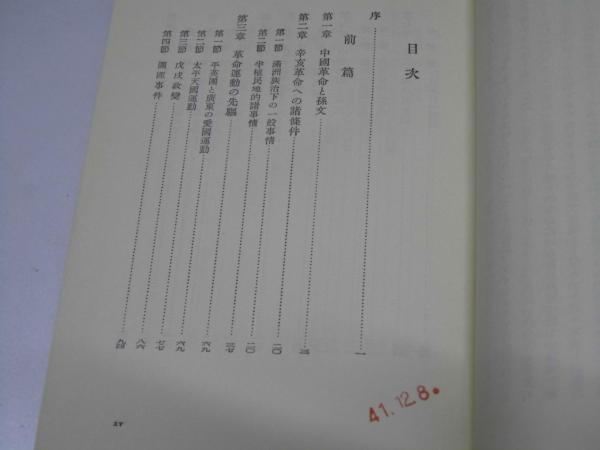 目次
序……一
前篇
第一章 中國革命と孫文……三
第二章 辛亥革命への諸條件……二〇
第一節 滿洲族治下の一般事情……二〇
第二節 半植民地的諸事情
第三章 革命運動の先驅
第一節 平英團と廣東の愛國運動……六九
第二節 太平天國運動……六九
第三節 戊戌政變
第四節 團匪事件
41.12.8.
xv